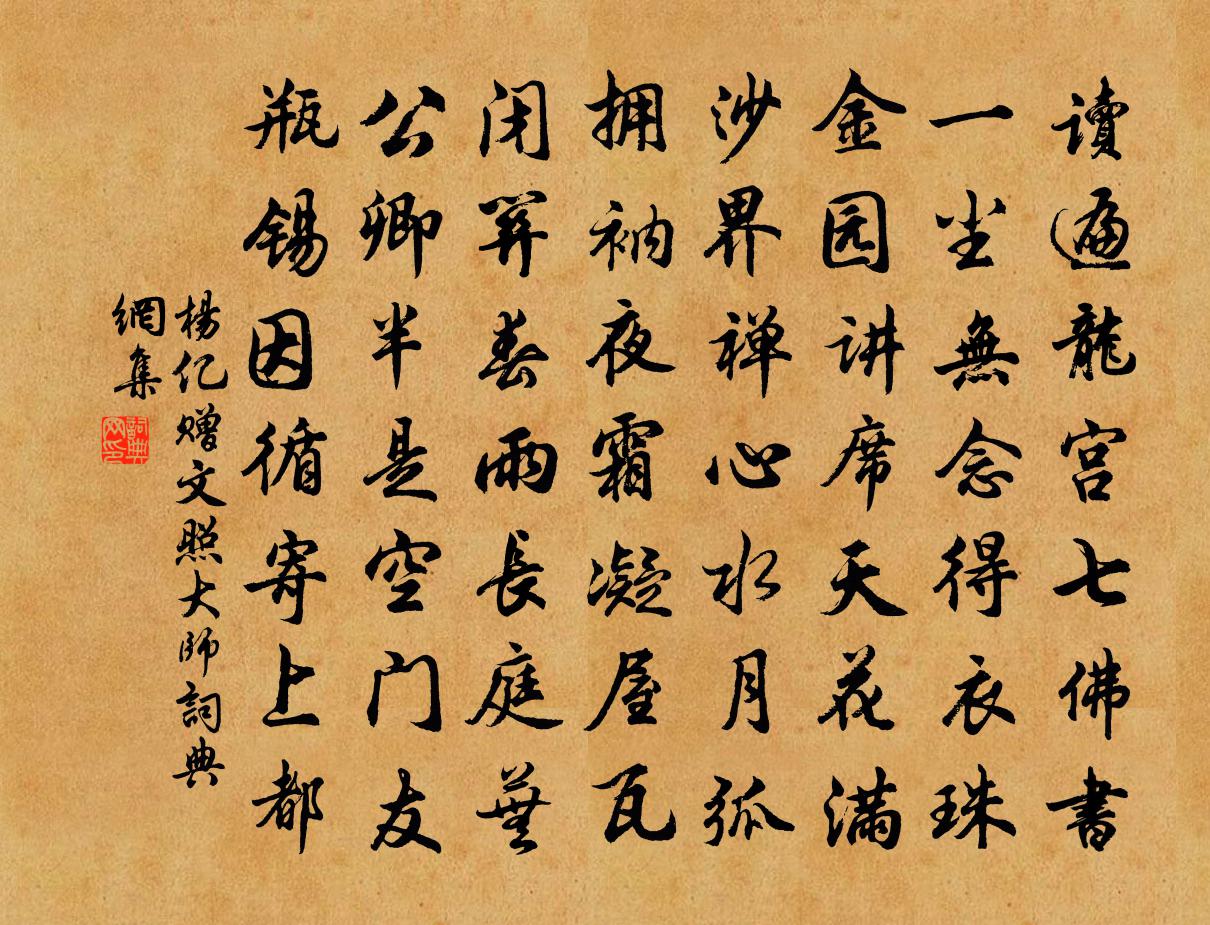 讀遍龍宫七佛書
一坐無念得衣珠
金园讲席天花满
沙界禅心水月孤
拥衲夜霜凝屋瓦
闭關春雨長庭蕪
公卿半是空门友
瓶锡因循寄上都
楊亿赠文照大師詞典
網集
詞典网印